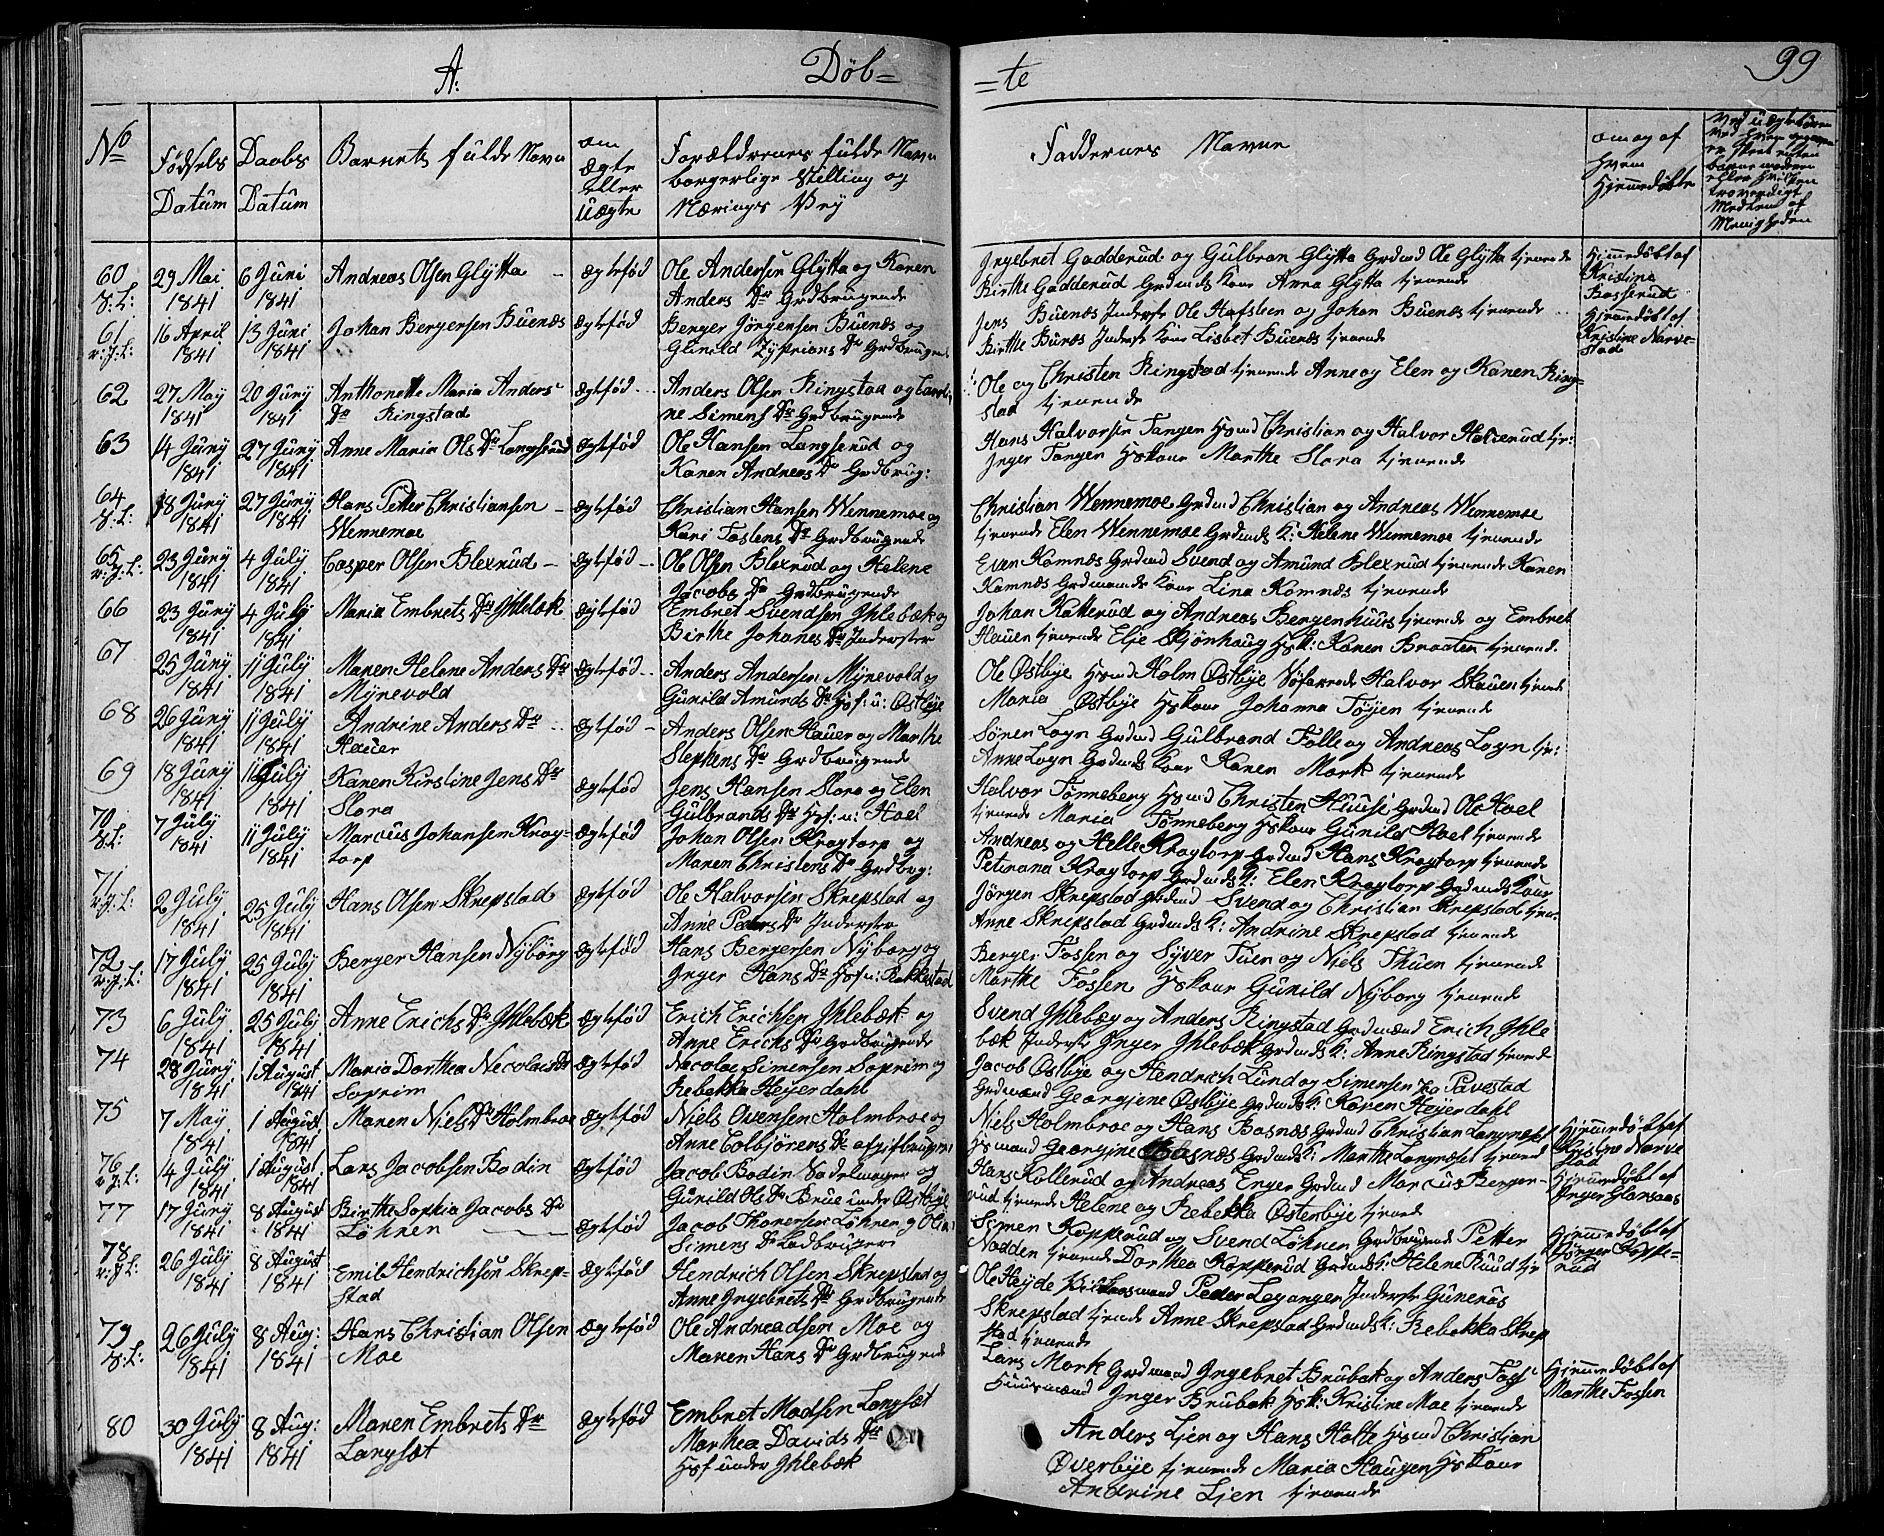 A:
Døb=
=te
99
No
Fødsels Datum
Daabs Datum
Barnets fulde Navn
om ægte eller uægte
Forældrenes fulde Navn borgerlige Stilling og Nærings Vej
Faddernes Navne
om og af hvem hjemmedøbte
60 29 Mai 1841 6 Juni 1841 Andreas Olsen Glÿtta ægtefød Ole Andersen Glÿtta og Karen
Anders Dr Grdbrugende
Ingebret Gadderud og Gulbran Glÿtta Grdmd Ole Glÿtta tjenende
Birthe Gadderud Grdmds Kone Anna Glÿtta tjenende
Hjemmedøbt af Kristine Basserud
61 16 April 1841 13 Juni 1841 Johan Bergersen Buenæs ægtefød Berger Jørgensen Buenæs og
Gunild Zÿprians Dr Grdbrugend
Jens Buenæs Inderst Ole Hafsten og Johan Buenæs tjenende
Birthe Bunæs Inderst Kone Lisbet Buenæs tjenende
Hjemmedøbt af Kristine Narvestad
62 27 May 1841 20 Juny 1841 Anthonette Maria Anders Dr Ringstad ægtefød Anders Olsen Ringstad og
ne Simens Dr Grdbrugende
Ole og Christen Ringstad tjenende Anne og Elen og Karen Ring-
stad tjenende
63 14 Juny 1841 27 Juny 1841 Anne Maria Ols Dr Langserud ægtefød Ole Hansen Langserud og
Karen Andreas Dr Grdbrug:
Hans Halvorsen Tangen Hsmd Christian og Halvor tje:
Inger Tangen Hskone Marthe Slora tjenende
64 18 Juny 1841 27 Juny 1841 Hans Petter Christiansen Wennemoe ægtefød Christian Hansen Wennemoe og
Kari Tostens Dr Grdbrugende
Christian Wennemoe Grdmd Christian og Andreas Wennemoe
tjenende Elen Wennemoe Grdmds K: Helene Wennemoe tjenende
65 23 Juny 1841 4 July 1841 Casper Olsen Blexrud ægtefød Ole Olsen Blexrud og Helene
Jacobs Dr Grdbrugende
Even Komnæs Grdmd Svend og Amund Blexrud tjenende Karen
Komnæs Grdmands Kone Lina Komnæs tjenende
66 23 Juny 1841 4 July 1841 Maria Embrets Dr Ihlebæk ægtefød Embret Svendsen Ihlebæk og
Birthe Johanes Dr Inderster
Johan Katterud og Andreas Bergenhuus tjenende og Embret
Hauen tjenende Elje Skjønhaug Hsk: Karen Braaten tjenend.
67 25 Juny 1841 11 July 1841 Maren Helene Anders Dr Mÿrevold ægtefød Anders Andersen Mÿrevold og
Gunild Amunds Dr Hsf: u: Østbÿe
Ole Østbÿe Hsmd Holm Østbÿe Søfarende Halvor Skauen tjenende
Maria Østbÿe Hskone Johanna Tøÿen tjenende
68 26 Juny 1841 11 July 1841 Andrine Anders Dr Hauer ægtefød Anders Olsen Hauer og Marthe
Stephens Dr Grdbrugende
Søren Løgn Grdmd Gulbrand Folle og Andreas Løgn tje:
Anne Løgn Grdmds Kone Karen Mork tjenende
69 18 Juny 1841 11 July 1841 Karen Kirstine Jens Dr Slora ægtefød Jens Hansen Slora og Elen
Gulbrands Dr Hsf: u: Hoel
Halvor Tønneberg Hsmd Christen Huuse Grdmd Ole Hoel
tjenende Maria Tønneberg Hskone Gunild Hoel tjenende
70 7 July 1841 11 July 1841 Marcus Johansen Kragtorp ægtefød Johan Olsen Kragtorp og
Maren Christens Dr Grdbrug:
Andreas og Helle Kragtorp Grdmd Hans Kragtorp tjenende
Kragtorp Grdmds K: Elen Kragtorp Grdmds Kone
71 2 July 1841 25 July 1841 Hans Olsen Skrepstad ægtefød Ole Halvorsen Skrepstad og
Anne Peders Dr Inderster
Jørgen Skrepstad Grdmd Svend og Christian Skrepstad tjen:
Anne Skrepstad Grdmds K: Andrine Skrepstad tjenende
72 17 July 1841 25 July 1841 Berger Hansen Nÿborg ægtefød Hans Bergersen Nÿborg og
Inger Hans Dr Hsf: u: Rakkestad
Berger Fossen og Syver Tuen og Niels Thuen tjenende
Marthe Fossen Hskone Gunild Nÿborg tjenende
73 6 July 1841 25 July 1841 Anne Erichs Dr Ihlebæk ægtefød Erich Erichsen Ihlebæk og
Anne Erichs Dr Grdbrugende
Svend Ihlebæg og Anders Ringstad Grdmænd Erich Ihle
bæk Inderst Inger Ihlebæk Grdmds K: Anne Ringstad tjenend
74 28 Juny 1841 1 August 1841 Maria Dorthea Necolais Dr Soprim ægtefød Necolae Simensen Soprim og
Rebekka Heyerdahl
Jacob Østbÿe og Hendrich Lund og Simensen fra Pavestad
Grdmænd Georgine Østbÿe Grdmds K: Karen Heÿerdahl
75 7 May 1841 1 August 1841 Maren Niels Dr Holmbroe ægtefød Niels Evensen Holmbroe og
Anne Colbjørens Dr
Niels Holmbroe og Hans Basnæs Grdmd Christian Langnæset
Hsmænd Georgine Basnæs Grdmds K: Marthe Langnæset tjenend
Hjemmedøbt af Kristine Narvestad
76 14 July 1841 1 August 1841 Lars Jacobsen Bodin ægtefød Jacob Bodin Sadelmager og
Gunild Ols Dr Brue under Østbÿe
Hans Kollerud og Andreas Enger Grdmd Marcus Berger-
rud tjenende Helene og Rebekka Østenbÿe tjenende
Hjemmedøbt af Inger
77 17 Juny 1841 8 August 1841 Birthe Sophia Jacobs Dr Løhren ægtefød Jacob Thoresen Løhren og
Simens Dr
Simen Kopperud og Svend Løhren Grdbrugende Petter
Nadden tjenende Dorthea Kopperud Grdmds K: Helene Ruud tje
Hjemmedøbt af Kopperud
78 26 July 1841 8 August 1841 Emil Hendrichsen Skrepstad ægtefød Hendrich Olsen Skrepstad og
Anne Ingebrets Dr Grdbrugende
Ole Heÿde Peder Leganger Inderst Gunerus
Skrepstad tjenende Anne Skrepstad Grdmds K: Rebekka Skrep
stad tjenende
79 26 July 1841 8 Aug: 1841 Hans Christian Olsen Moe ægtefød Ole Andreadsen Moe og
Maren Hans Dr Grdbrugende
Lars Mork Grdmand Ingebret Brubak og Anders Foss
Huusmænd Inger Brubak Hsk: Kristine Moe tjenende
Hjemmedøbt af Marthe Fossen
80 30 July 1841 8 Aug: 1841 Maren Embrets Dr Langsæt ægtefød Embret Madsen Langsæt
Marthea Davids Dr
Hsf under Ihlebæk
Anders Lien og Hans Holte Hsmd Christian
Øverbÿe tjenende Maria Haugen Hskone
Andrine Lien tjenende